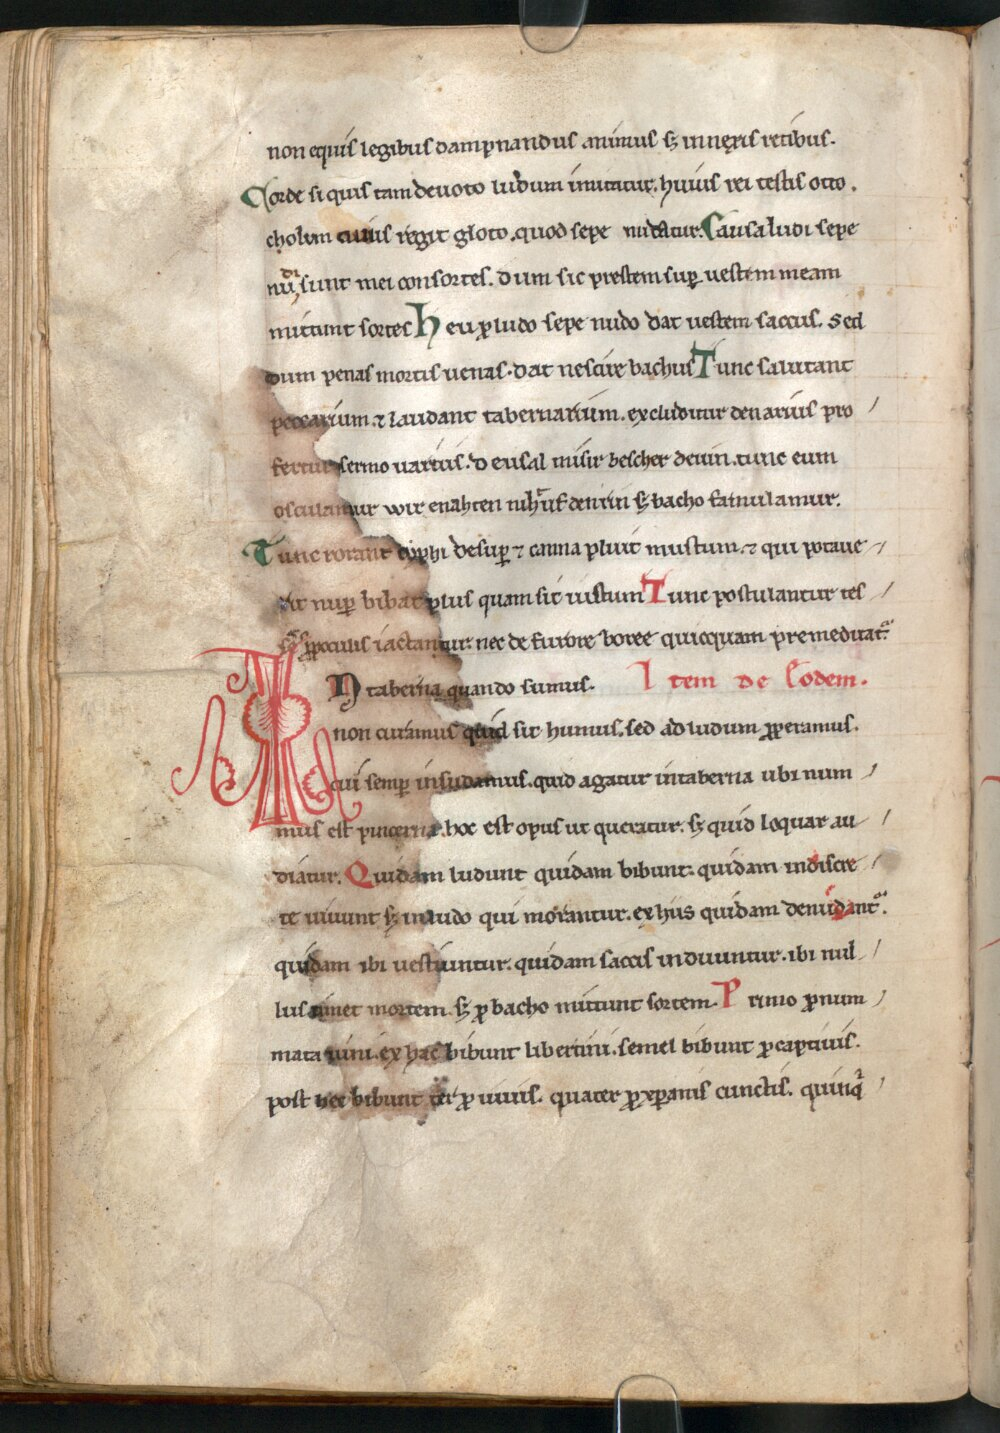 non equis legibus dampnandus animus sꝫ innexis retibus.
Corde si quis tam deuoto ludum imitatur. huius rei testis otto.
cholum cuius regit gloto. quod sepe nudatur. Causa ludi sepe
nudi sunt mei consortes. dum sic prestem suꝑ uestem meam
mittunt sortes Heu ꝓ ludo sepe nudo dat uestem saccus. sed
dum penas mortis uenas. dat nescire bachus Tunc salutant
peccarium. ⁊ laudant tabernarium. excluditur denarius pro
fertur sermo uarius. deusal misir bescher deuin. tunc eum
osculamur wir enahten denrin sꝫ bacho famulamur.
Tunc rorant cyphi desuꝑ ⁊ canna pluit mustum. ⁊ qui potaue
rit nuꝑ bibat plus quam sit iustum Tunc postulantur tes
ꝓculis iactantur. nec de furore boree quicquam premeditatᷣ.
Item de Eodem.
In taberna quando sumus.
non curamus quid sit humus. sed ad ludum ꝓperamus.
cui semꝑ insudamus. quid agatur in taberna ubi num
mus est pincerna. hoc est opus ut queratur. sꝫ quid loquar au
diatur. Quidam ludunt quidam bibunt. quidam indiscre
te uiuunt sꝫ in ludo qui morantur. ex his quidam denudantᷣ.
quidam ibi uestiuntur. quidam saccis induuntur. ibi nul
lus timet mortem. sꝫ ꝓ bacho mittunt sortem. Primo ꝓ num
mata uini. ex hac bibunt libertini. semel bibunt ꝓ captiuis.
post hec bibunt ter ꝓ uiuis. quater ꝓ xp̄anis cunctis. quinq̄